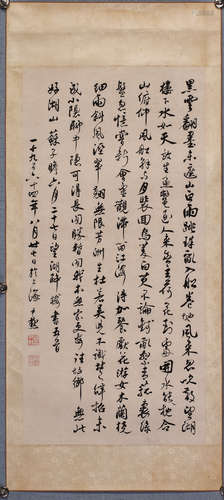 黑雲翻墨未遮山白雨跳珠亂入船卷地風來忽吹散望湖
樓下水如天放生魚鱉逐人來無主荷花到處開水枕能令
山俯仰風船解與月裴回烏菱白芡不論錢亂繫青菰裹綠
盤忽憶嘗新會靈觀滯留江海得加餐獻花游女木蘭橈
細雨斜風溼翠翹無限芳洲生杜若吳兒不識楚辭招未
成小隱聊中隱可得長閒勝暫閒我本無家更安往故鄉無此
好湖山 蘇子瞻六月二十七日望湖樓醉書五首
一千九百六十四年八月廿七日於上海 尹默